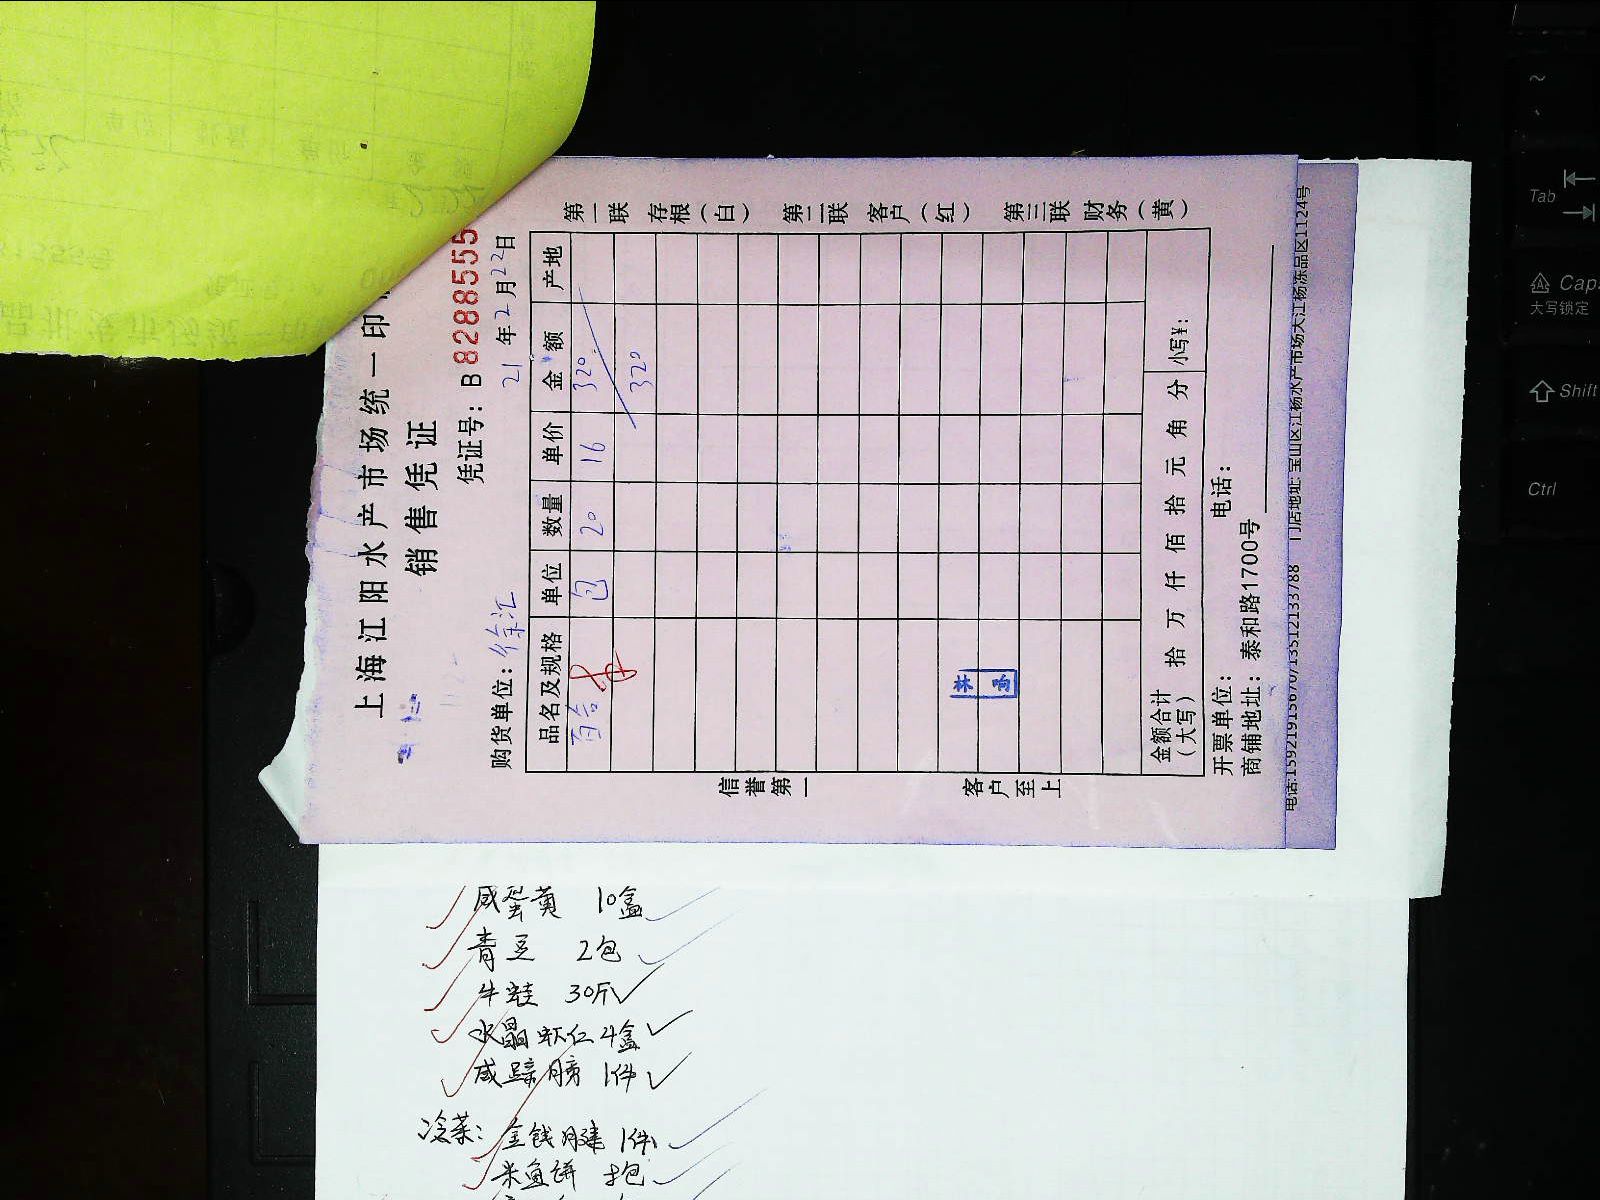 上海江阳水产市场统一印
销售凭证
凭证号：B8288555
购货单位：徐汇 21年2月22日
品名及规格 单位 数量 单价 金额 产地
百合 包 20 16 320
320
金额合计（大写） 拾 万 仟 佰 拾 元 角 分 小写¥：
开票单位： 电话：
商铺地址：泰和路1700号
电话:15921915670/13512133788 门店地址:宝山区江杨水产市场大江杨冻品区1124号
第一联 存根（白） 第二联 客户（红） 第三联 财务（黄）
信誉第一 客户至上
咸蛋黄 10盒
青豆 2包
牛蛙 30斤
水晶虾仁 4盒
咸蹄膀 1件
冷菜：金钱腱 1件
米鱼饼
Tab
Caps
大写锁定
Shift
Ctrl